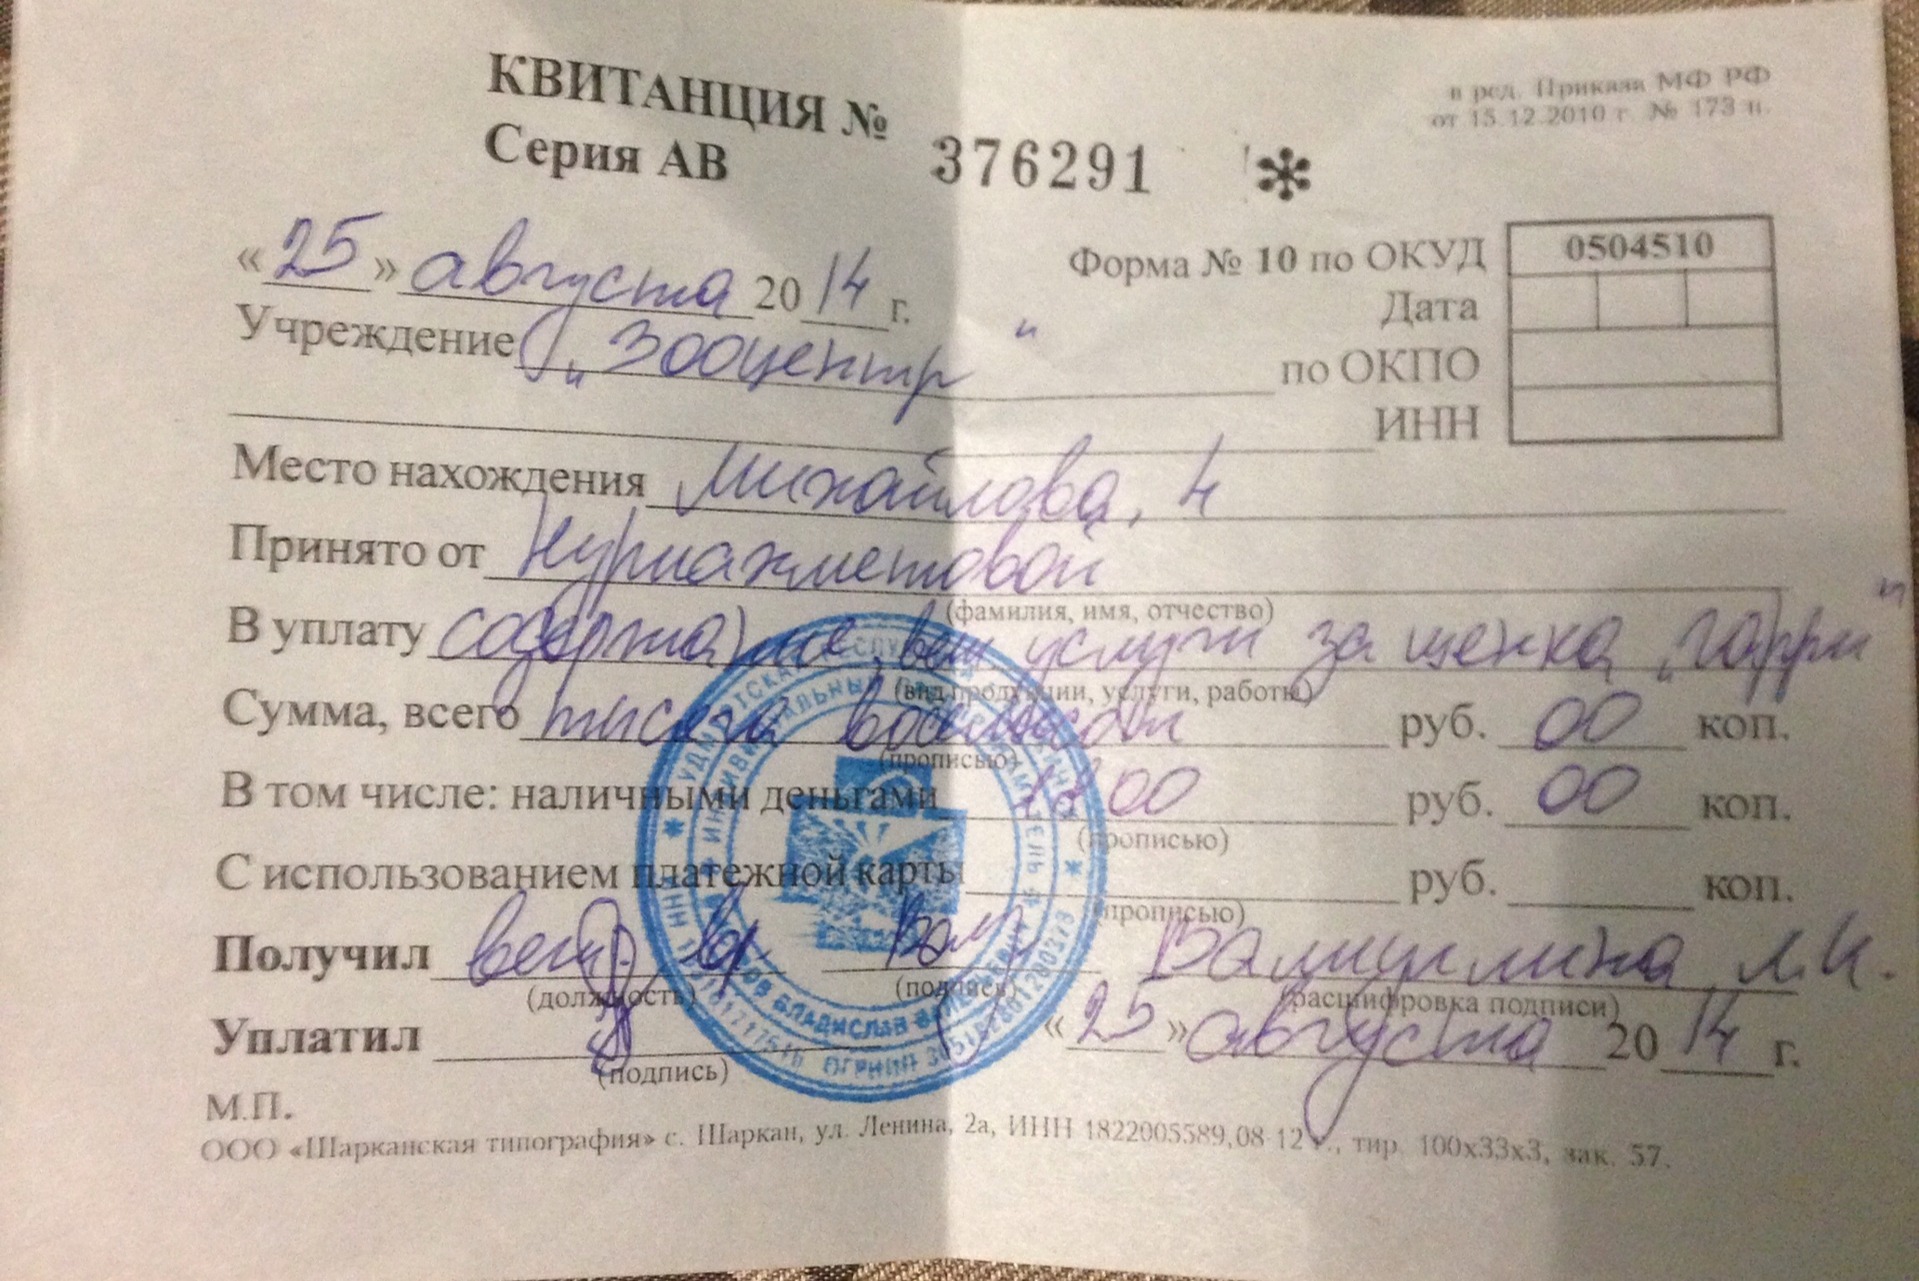 КВИТАНЦИЯ №
Серия АВ 376291 *
в ред. Приказа МФ РФ
от 15.12.2010 г. № 173 н.
«25» августа 2014 г.
Форма № 10 по ОКУД 0504510
Дата
Учреждение „Зооцентр"
по ОКПО
ИНН
Место нахождения Михайлова, 4
Принято от Нуриахметовой
(фамилия, имя, отчество)
В уплату содержание, вет услуги за щенка „Гарри"
(вид продукции, услуги, работы)
Сумма, всего тысяча восемьсот руб. 00 коп.
(прописью)
В том числе: наличными деньгами 1800 руб. 00 коп.
(прописью)
С использованием платежной карты руб. коп.
(прописью)
Получил вет. вр. Вал Валиуллина Л.И.
(должность) (подпись) (расшифровка подписи)
Уплатил «25» августа 2014 г.
(подпись)
М.П.
ООО «Шарканская типография» с. Шаркан, ул. Ленина, 2а, ИНН 1822005589, 08-12 г., тир. 100х33х3, зак. 57.